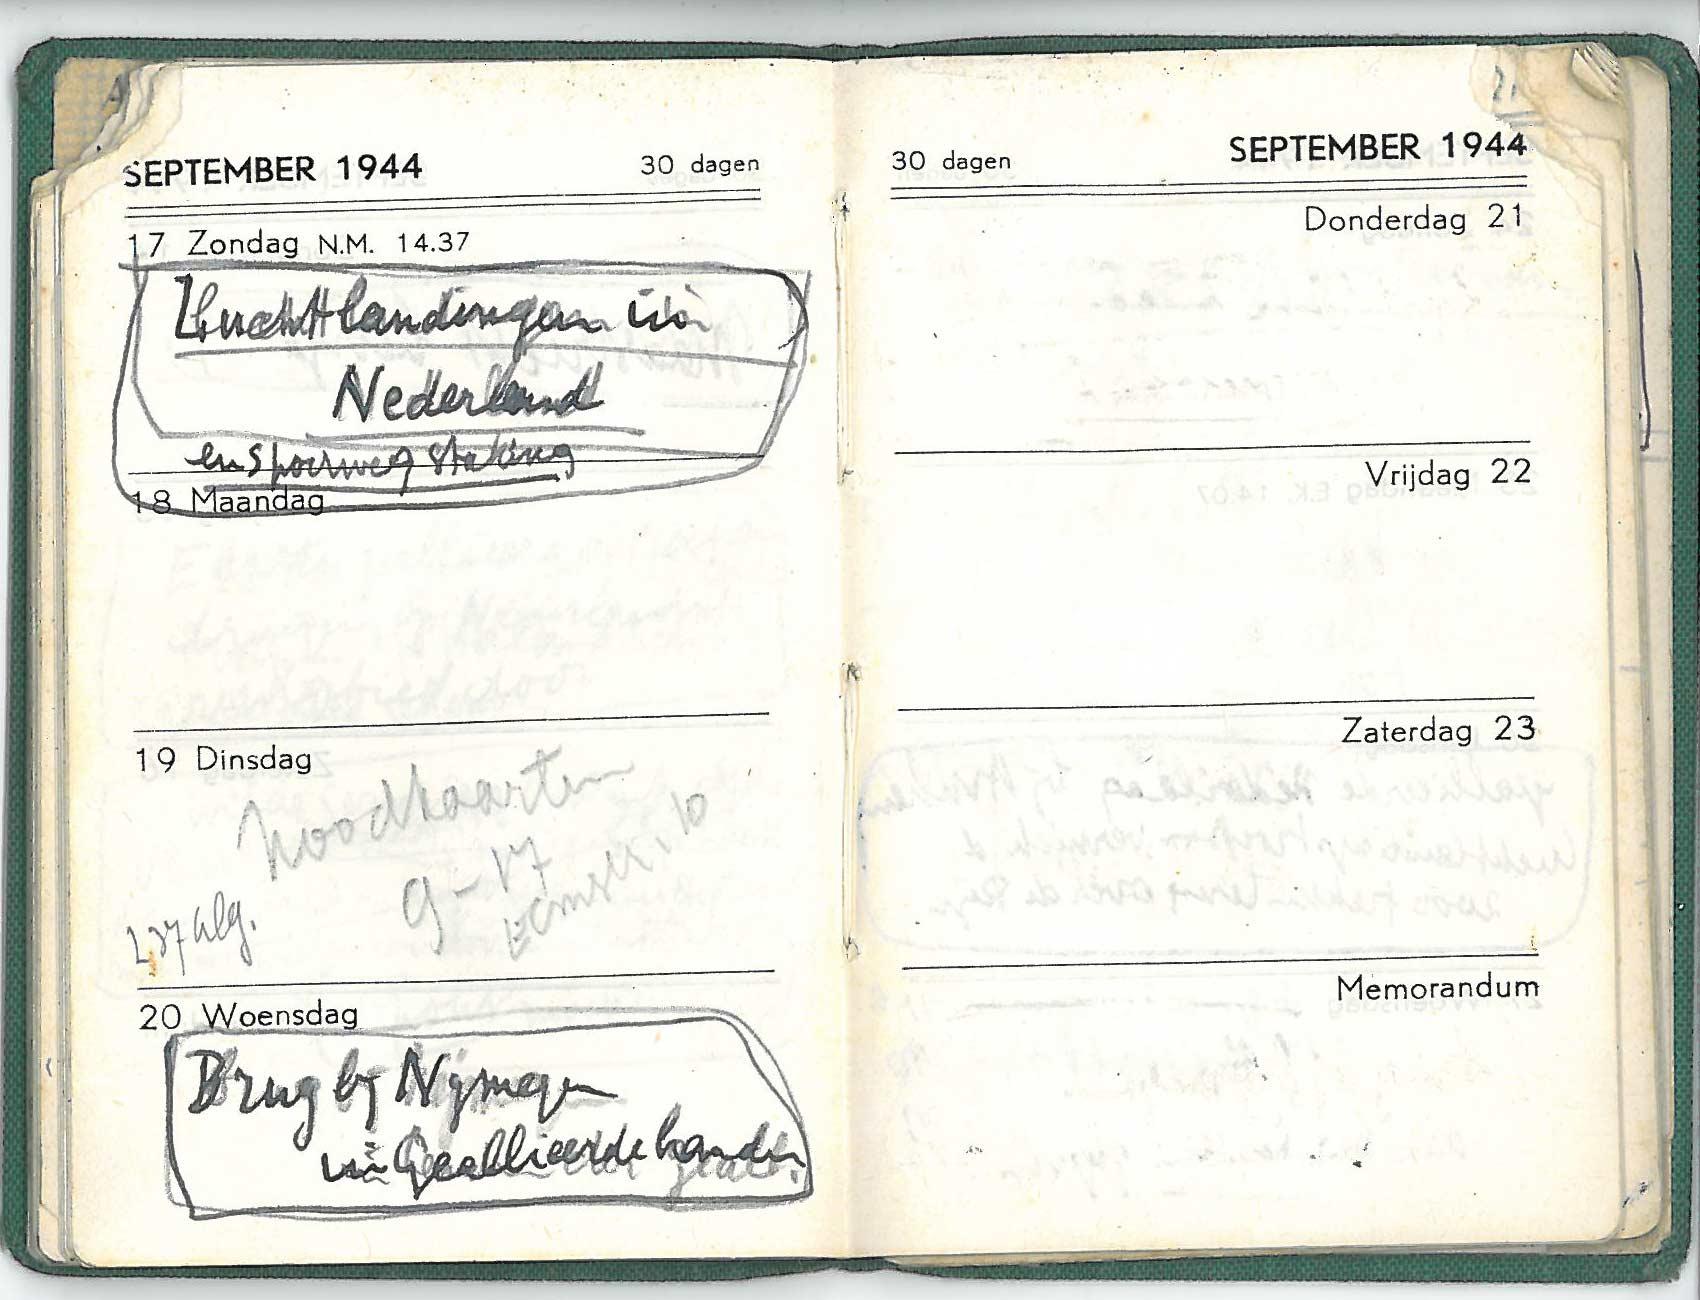 SEPTEMBER 1944 30 dagen
17 Zondag N.M. 14.37
Luchtlandingen in
Nederland
en spoorweg staking
18 Maandag
19 Dinsdag
Noodkaarten
9-17
237 alg.
20 Woensdag
Brug bij Nijmegen
in Geallieerde handen
30 dagen SEPTEMBER 1944
Donderdag 21
Vrijdag 22
Zaterdag 23
Memorandum